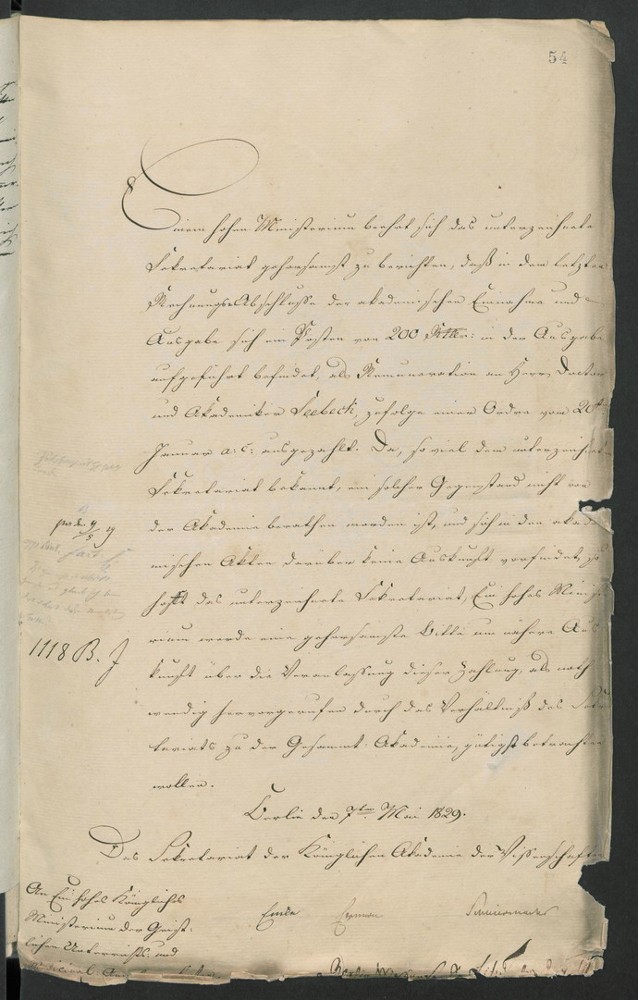 54
Einem hohen Ministerium beehrt sich das unterzeichnete
Sekretariat gehorsamst zu berichten, daß in dem letzten
Rechnungs-Abschlusse der akademischen Einnahme und
Ausgabe sich ein Posten von 200 Rtlr: in der Ausgabe
aufgeführt befindet, als Remuneration an Herrn Doctor
und Akademiker Seebeck, zufolge einer Ordre vom 20t
Januar a: c: ausgezahlt. Da, so viel dem unterzeichneten
Sekretariat bekannt, ein solcher Gegenstand nicht von
der Akademie berathen worden ist, und sich in den akade
mischen Akten darüber keine Auskunft vorfindet, so
hofft das unterzeichnete Sekretariat, Ein hohes Ministe
rium werde eine gehorsamste Bitte um nähere Aus
kunft über die Veranlassung dieser Zahlung, als noth
wendig hervorgerufen durch das Verhältniß des Sekre
tariats zu der Gesammt-Akademie, gütigst betrachten
wollen.
Berlin den 7ten Mai 1829.
Das Sekretariat der Königlichen Akademie der Wissenschaften
1118 B. J
An Ein hohes Königliches
Ministerium der Geist-
lichen Unterrichts- und
Medicinal
Encke Erman